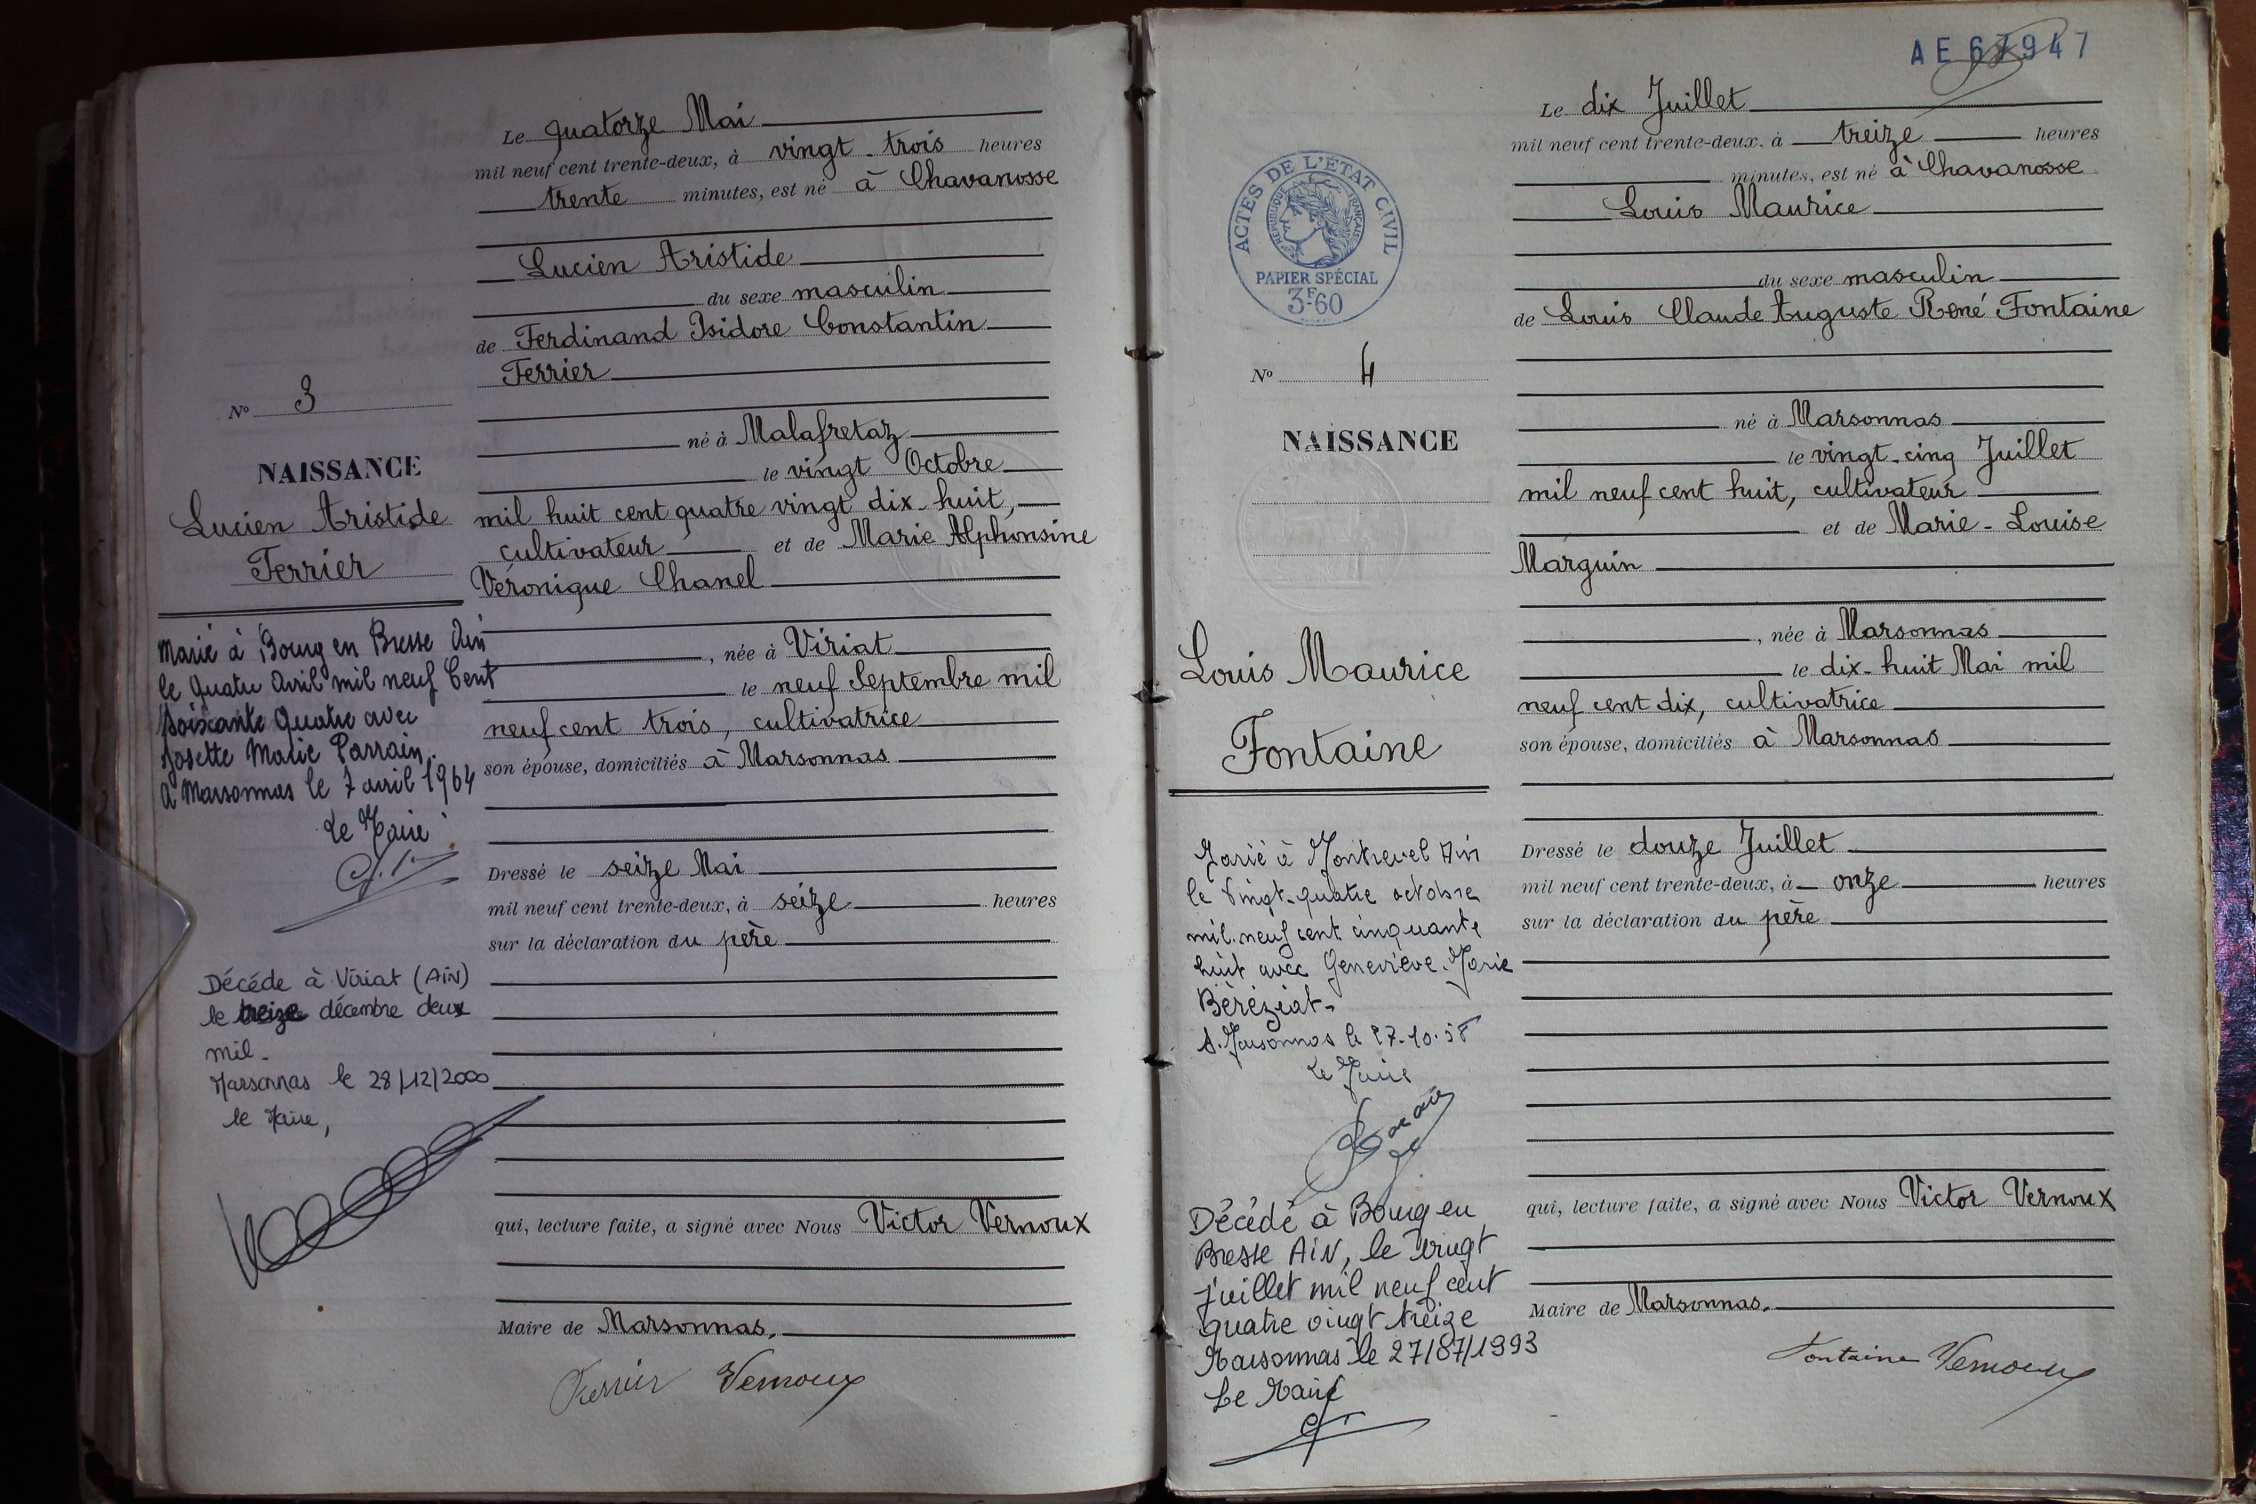 Le quatorze Mai
mil neuf cent trente-deux, à vingt-trois heures
trente minutes, est né à Chavanosse
Lucien Aristide
du sexe masculin
de Ferdinand Isidore Constantin
Ferrier
né à Malafretaz
le vingt Octobre
mil huit cent quatre vingt dix-huit,
cultivateur et de Marie Alphonsine
Véronique Chanel
, née à Viriat
le neuf Septembre mil
neuf cent trois, cultivatrice
son épouse, domiciliés à Marsonnas
Dressé le seize Mai
mil neuf cent trente-deux, à seize heures
sur la déclaration du père
qui, lecture faite, a signé avec Nous Victor Vernoux
Maire de Marsonnas.
Ferrier Vernoux
No 3
NAISSANCE
Lucien Aristide
Ferrier
Marié à Bourg en Bresse Ain
le quatre Avril mil neuf Cent
soixante quatre avec
Josette Marie Parrain.
A Marsonnas le 7 avril 1964
Le Maire
Décéde à Viriat (AiN)
le treize décembre deux
mil-
Marsonnas le 28/12/2000
le Maire,
AE 67947
Le dix Juillet
mil neuf cent trente-deux, à treize heures
minutes, est né à Chavanosse
Louis Maurice
du sexe masculin
de Louis Claude Auguste René Fontaine
né à Marsonnas
le vingt-cinq Juillet
mil neuf cent huit, cultivateur
et de Marie-Louise
Marguin
, née à Marsonnas
le dix-huit Mai mil
neuf cent dix, cultivatrice
son épouse, domiciliés à Marsonnas
Dressé le douze Juillet
mil neuf cent trente-deux, à onze heures
sur la déclaration du père
qui, lecture faite, a signé avec Nous Victor Vernoux
Maire de Marsonnas.
Fontaine Vernoux
ACTES DE L'ÉTAT CIVIL
RÉPUBLIQUE FRANÇAISE
PAPIER SPÉCIAL
3F-60
No 4
NAISSANCE
Louis Maurice
Fontaine
Marié à Montrevel Ain
le vingt-quatre octobre
mil-neuf cent cinquante
huit avec Geneviève-Marie
Béréziat-
A. Marsonnas le 27-10-58
Le Maire
Décédé à Bourg en
Bresse AiN, le vingt
juillet mil neuf cent
quatre vingt treize
Marsonnas le 27/07/1993
Le Maire